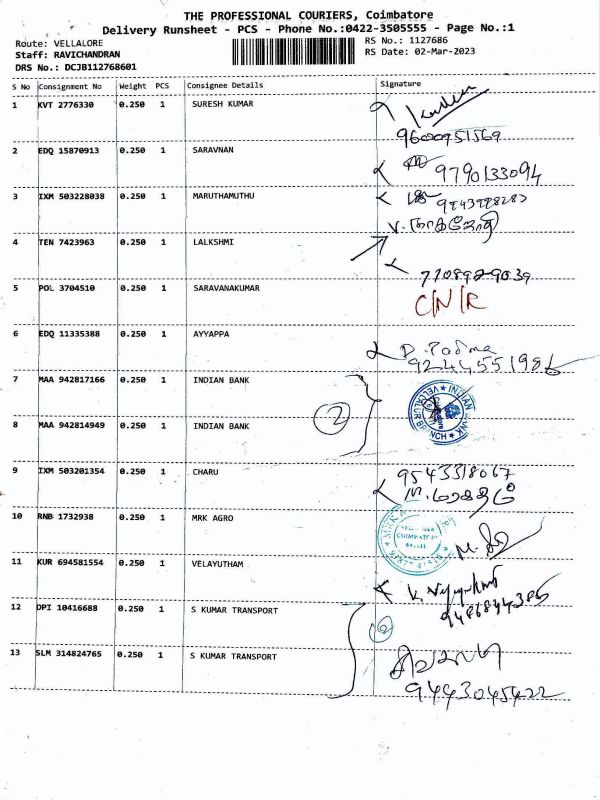 THE PROFESSIONAL COURIERS, Coimbatore
Delivery Runsheet - PCS - Phone No.:0422-3505555 - Page No.:1
Route: VELLALORE
RS No.: 1127686
Staff: RAVICHANDRAN
RS Date: 02-Mar-2023
DRS No.: DCJB112768601
S No Consignment No Weight PCS Consignee Details Signature
1 KVT 2776330 0.250 1 SURESH KUMAR
9600951569
2 EDQ 15870913 0.250 1 SARAVNAN
9790133094
3 IXM 503228038 0.250 1 MARUTHAMUTHU
4 TEN 7423963 0.250 1 LALKSHMI
5 POL 3704510 0.250 1 SARAVANAKUMAR
C/N/R
6 EDQ 11335388 0.250 1 AYYAPPA
D. Padma
7 MAA 942817166 0.250 1 INDIAN BANK
2
8 MAA 942814949 0.250 1 INDIAN BANK
9 IXM 503201354 0.250 1 CHARU
9543318067
10 RNB 1732938 0.250 1 MRK AGRO
11 KUR 694581554 0.250 1 VELAYUTHAM
12 DPI 10416688 0.250 1 S KUMAR TRANSPORT
2
13 SLM 314824765 0.250 1 S KUMAR TRANSPORT
9443045422